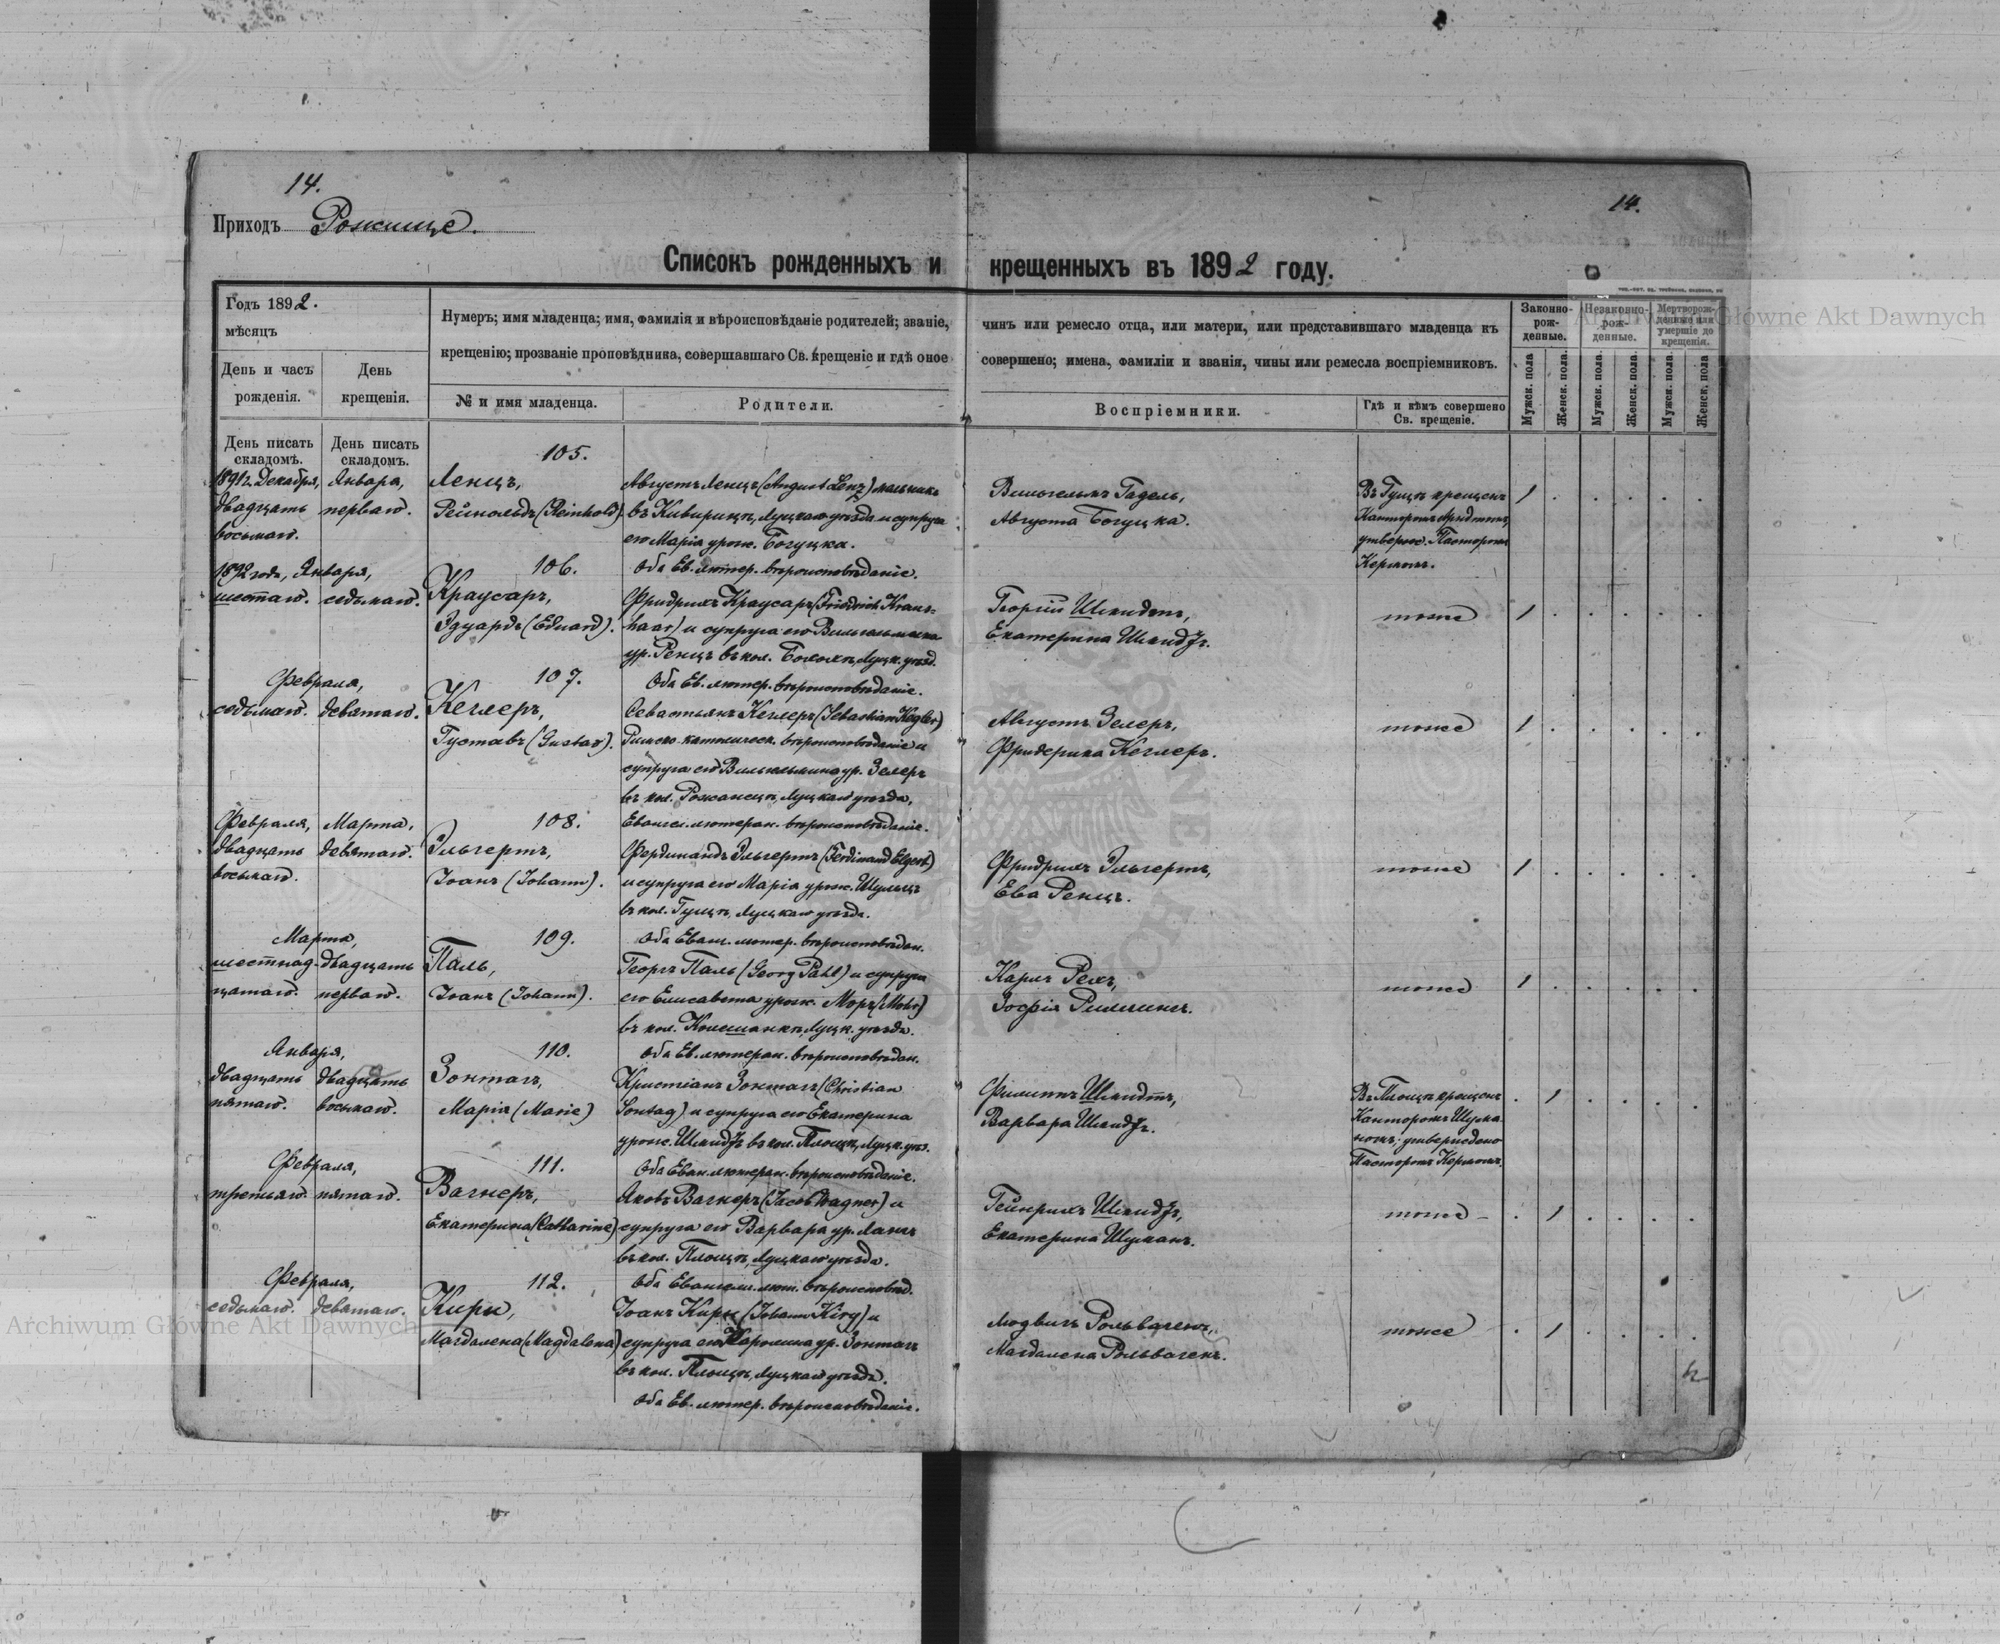 14.
14.
Приходъ Рожище.
Списокъ рожденныхъ и крещенныхъ въ 1892 году.
Годъ 1892.
мѣсяцъ
День и часъ рожденія.
День крещенія.
Нумеръ; имя младенца; имя, фамилія и вѣроисповѣданіе родителей; званіе, чинъ или ремесло отца, или матери, или представившаго младенца къ
крещенію; прозваніе проповѣдника, совершавшаго Св. крещеніе и гдѣ оное совершено; имена, фамиліи и званія, чины или ремесла воспріемниковъ.
№ и имя младенца.
Родители.
Воспріемники.
Гдѣ и кѣмъ совершено Св. крещеніе.
Законно-рож-денные.
Незаконно-рож-денные.
Мертворож-денные или умершіе до крещенія.
Мужск. пола
Женск. пола.
Мужск. пола.
Женск. пола.
Мужск. пола.
Женск. пола
День писать складомъ.
День писать складомъ.
105.
1891 г. Декабря,
двадцать
восьмаго.
Января,
перваго.
Ленцъ,
Рейнольдъ (Reinhold).
Августъ Ленцъ (August Lenz) мельникъ
въ Киверцѣ, Луцкаго уѣзда и супруга
его Марія урож. Богуцка.
Оба Ев. лютер. вѣроисповѣданіе.
Вильгельмъ Гадель,
Августа Богуцка.
Въ Гущѣ крещенъ
Канторомъ
утвержд. Пасторомъ
Кермомъ.
1
106.
1892 года, Января,
шестаго.
седьмаго.
Краусаръ,
Эдуардъ (Eduard).
Фридрихъ Краусаръ (Friedrich Kraus-
haar) и супруга его Вильгельмина
ур. Ренцъ въ кол. Луцк. уѣзд.
Оба Ев. лютер. вѣроисповѣданіе.
Георгій Шмидтъ,
Екатерина Шмидтъ.
тоже
1
107.
Февраля,
седьмаго.
девятаго.
Кеглеръ,
Густавъ (Gustav).
Севастьянъ Кеглеръ (Sebastian Kegler)
Римско-католическ. вѣроисповѣданіе и
супруга его Вильгельмина ур. Зелеръ
въ кол. Рожанецѣ, Луцкаго уѣзда,
Евангел. лютеран. вѣроисповѣданіе.
Августъ Зелеръ,
Фридерика Кеглеръ.
тоже
1
108.
Февраля,
двадцать
восьмаго.
Марта,
девятаго.
Эльгертъ,
Іоанъ (Johann).
Фердинандъ Эльгертъ (Ferdinand Elgert)
и супруга его Марія урож. Шульцъ
въ кол. Гущѣ, Луцкаго уѣзда.
Оба Еванг. лютер. вѣроисповѣдан.
Фридрихъ Эльгертъ,
Ева Ренцъ.
тоже
1
109.
Марта,
шестнад-
цатаго.
двадцать
перваго.
Паль,
Іоанъ (Johann).
Георгъ Паль (Georg Pahl) и супруга
его Елисавета урож. Моръ (Mohr)
въ кол. Луцк. уѣзда.
Оба Ев. лютеран. вѣроисповѣдан.
Карлъ Рехъ,
Зофія
тоже
1
110.
Января,
двадцать
пятаго.
двадцать
восьмаго.
Зонтагъ,
Марія (Marie)
Христіанъ Зонтагъ (Christian
Sontag) и супруга его Екатерина
урож. Шмидтъ въ кол. Площѣ, Луцк. уѣз.
Оба Еван. лютеран. вѣроисповѣданіе.
Филиппъ Шмидтъ,
Варвара Шмидтъ.
Въ Площѣ крещенъ
Канторомъ Шума-
номъ; утверждено
Пасторомъ Кермомъ.
1
111.
Февраля,
третьяго.
пятаго.
Вагнеръ,
Екатерина (Catharine)
Яковъ Вагнеръ (Jacob Wagner) и
супруга его Варвара ур. Лангъ
въ кол. Площѣ, Луцкаго уѣзда.
Оба Евангели. лют. вѣроисповѣд.
Гейнрихъ Шмидтъ,
Екатерина Шуманъ.
тоже
1
112.
Февраля,
седьмаго.
девятаго.
Кирн,
Магдалена (Magdalena)
Іоанъ (Johann) и
супруга его Каролина ур. Зонтагъ
въ кол. Площѣ, Луцкаго уѣзда.
Оба Ев. лютер. вѣроисповѣданіе.
Людвигъ Рольвагенъ,
Магдалена Рольвагенъ.
тоже
1
Archiwum Główne Akt Dawnych
Archiwum Główne Akt Dawnych